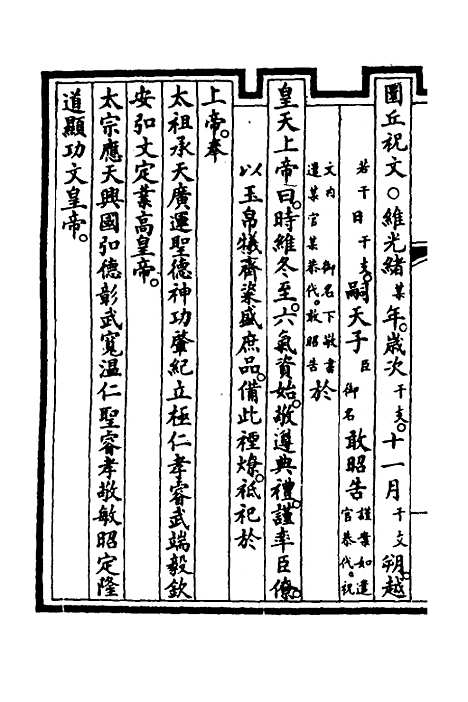 圜丘祝文○維光緒某年。歲次干支。十一月干支朔。越
若干日干支。嗣天子臣御名敢昭告謹案如遣官恭代。祝
文內御名下敬書遣某官某恭代。敢昭告於
皇天上帝曰。時維冬至。六氣資始。敬遵典禮。謹率臣僚。
以玉帛犧齊粢盛庶品。備此禋燎。祗祀於
上帝。奉
太祖承天廣運聖德神功肇紀立極仁孝睿武端毅欽
安弘文定業高皇帝。
太宗應天興國弘德彰武寬溫仁聖睿孝敬敏昭定隆
道顯功文皇帝。